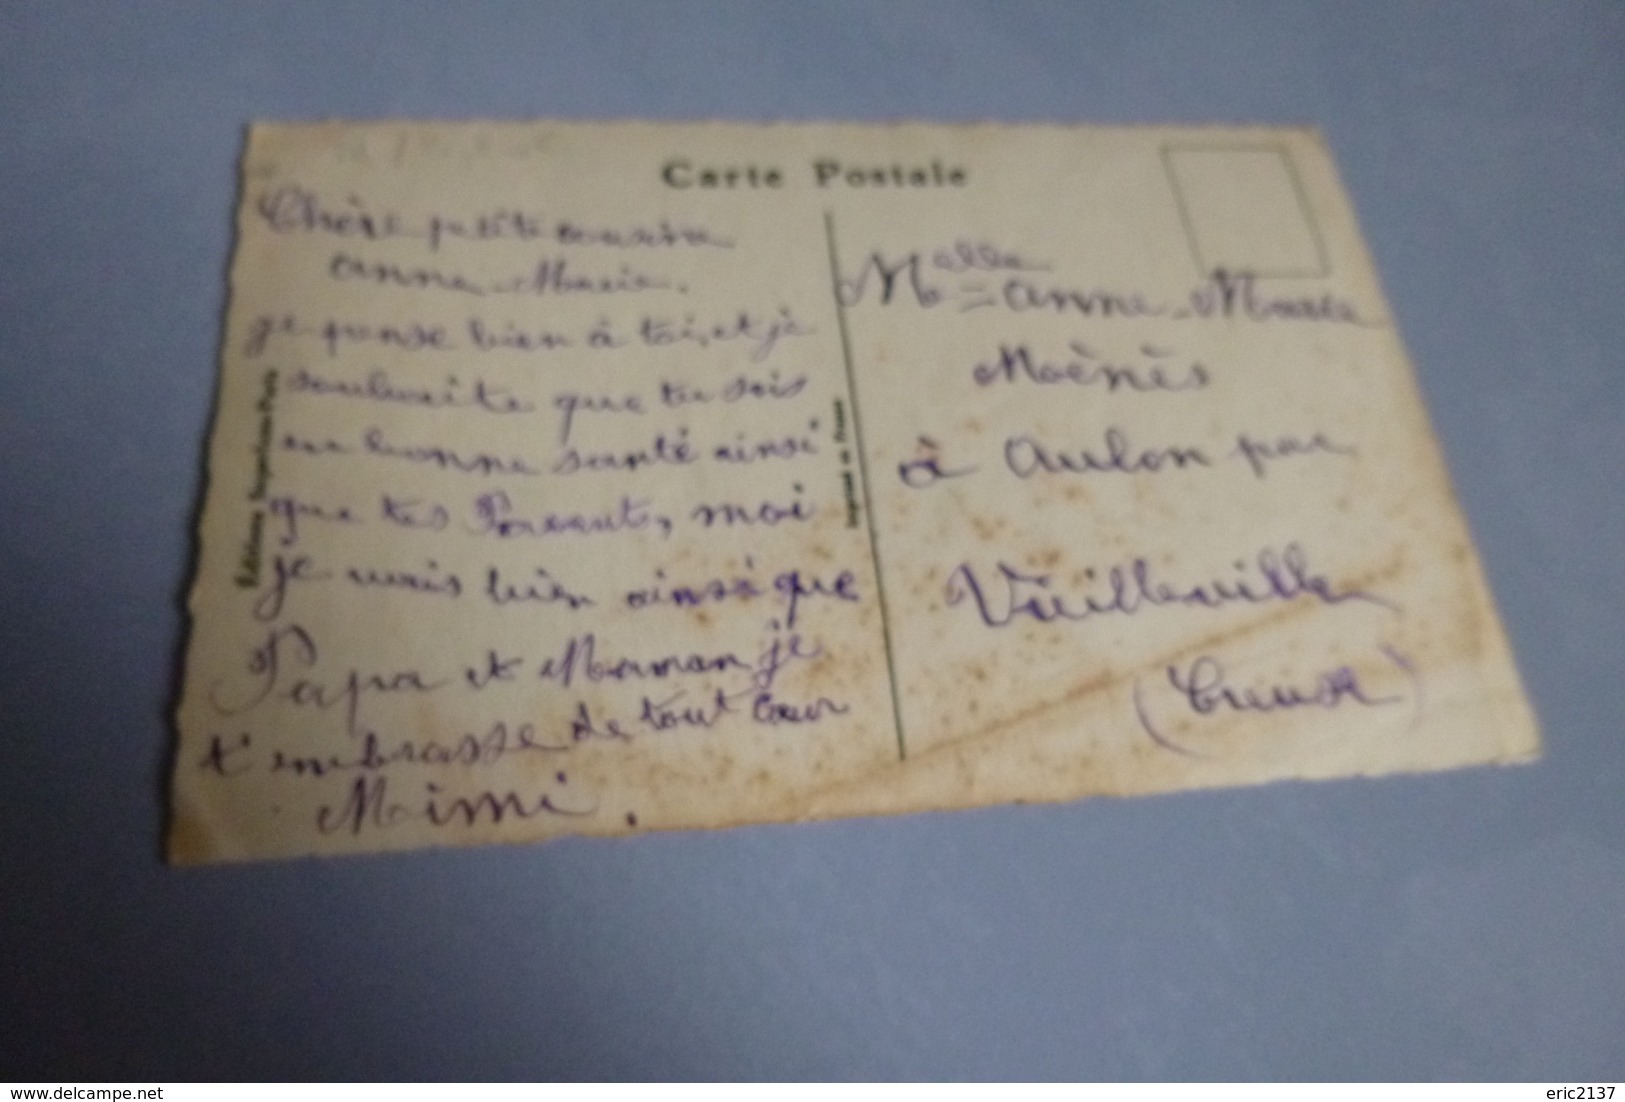 Carte Postale
Chère petite cousine
Anne-Marie.
je pense bien à toi, et je
souhaite que tu sois
en bonne santé ainsi
que tes Parents, moi
je vais bien ainsi que
Papa et Maman je
t'embrasse de tout cœur
Mimi.
Melle = Anne-Marie
à Aulon par
Vieilleville
(Creuse)
Imprimé en France
delcampe.net
eric2137